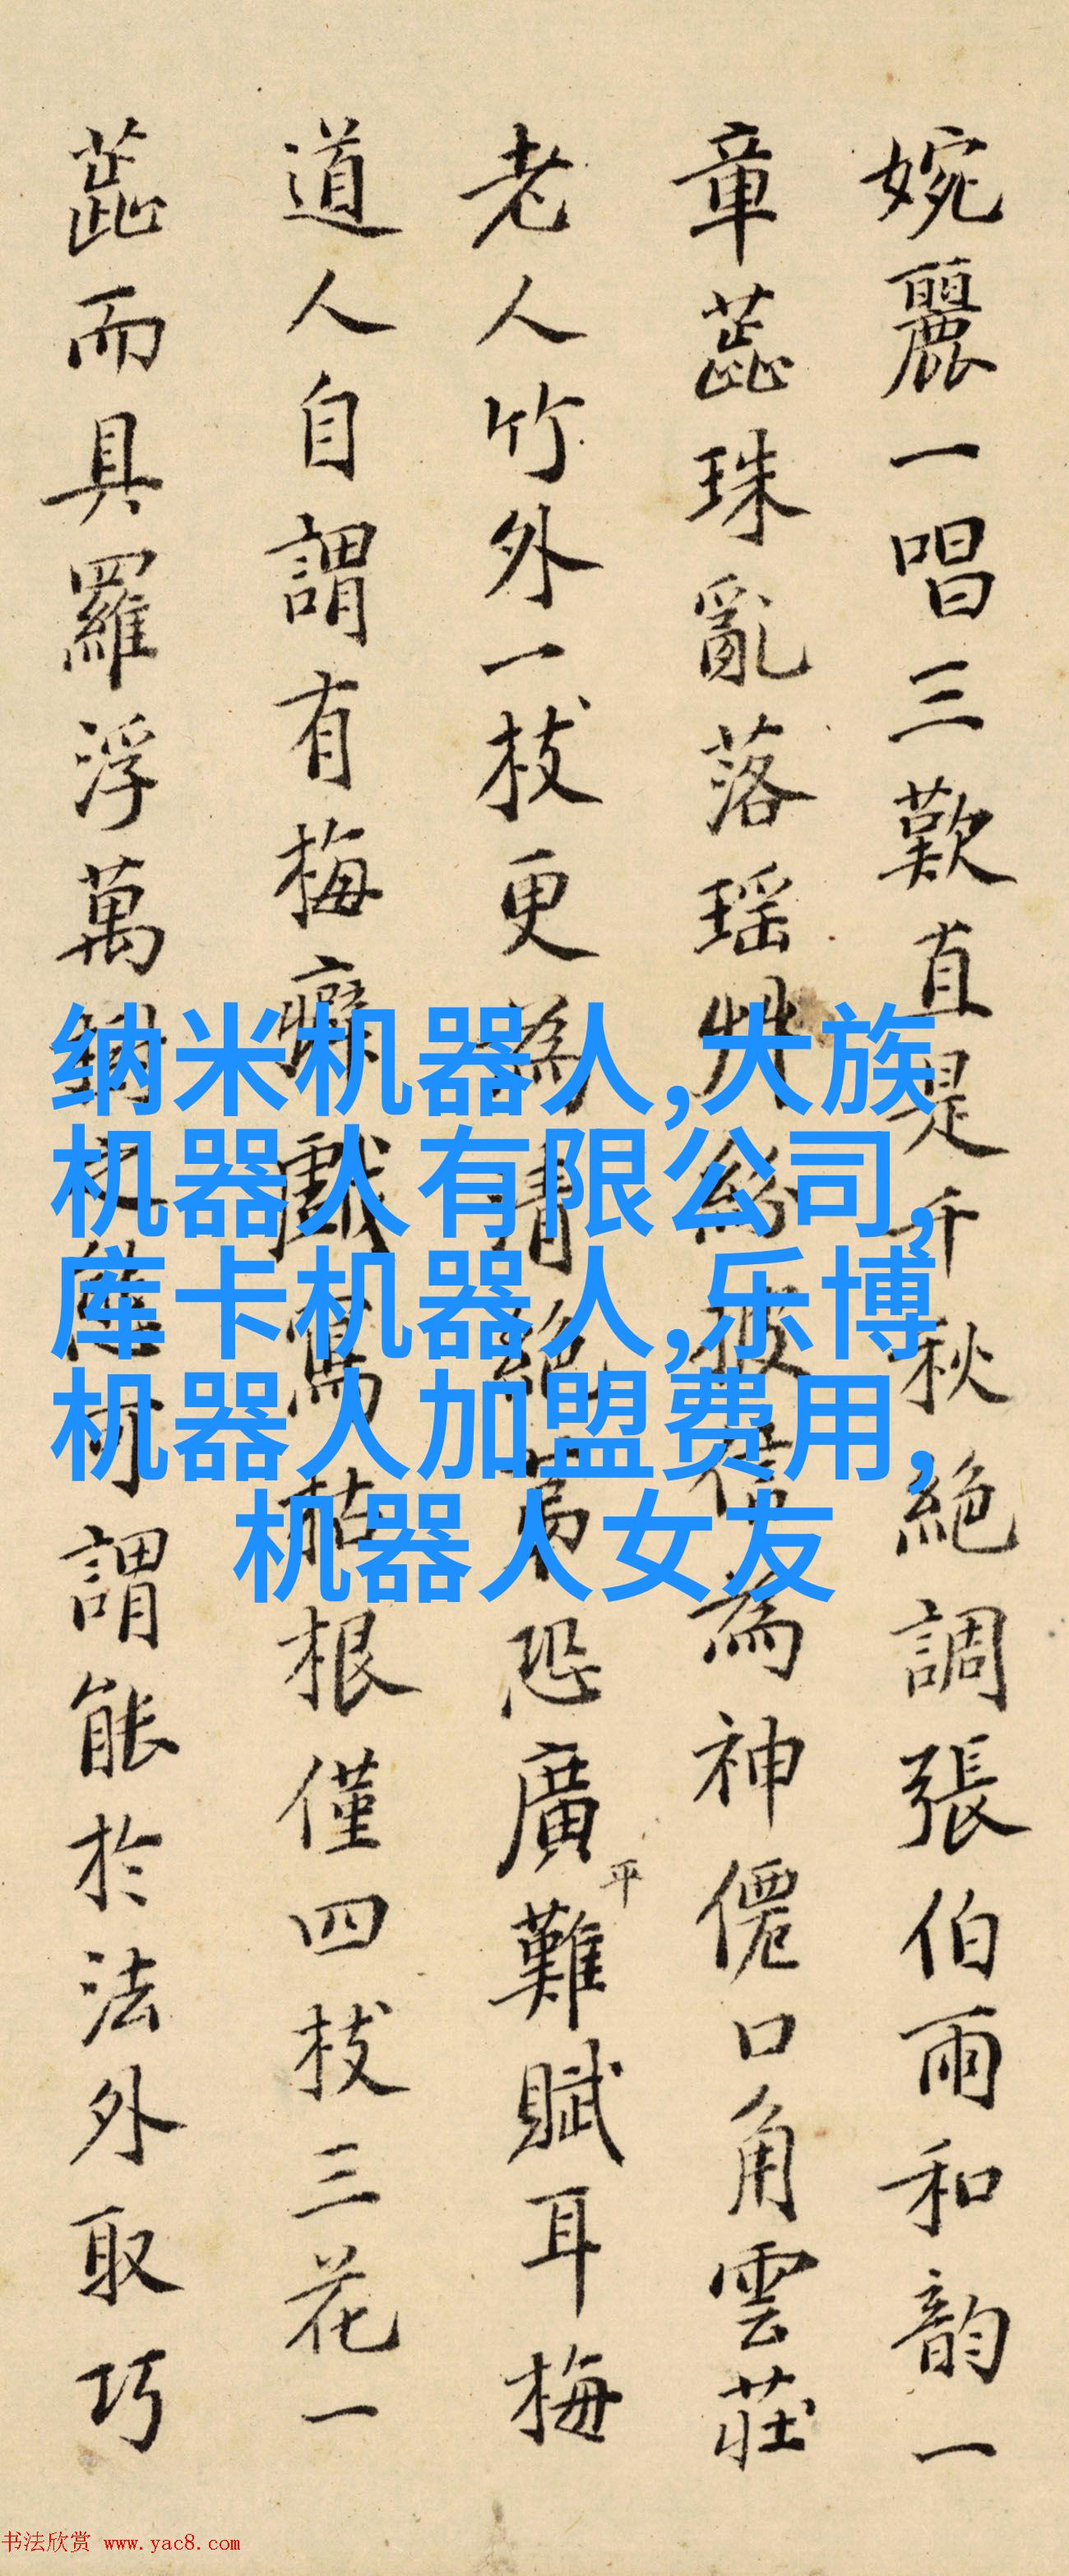 婉麗一唱三歎直是千秋絕調張伯雨和韵一
章蕋珠亂落瑶艸紛披信為神僊口角雲莊
老人竹外一枝更為清絕苐恐廣平難賦耳梅
道人自謂有梅癖戲寫枯根僅四枝三花一
蕋而具羅浮萬可謂能於法外取巧
纳米机器人,大族
机器人有限公司,
库卡机器人,乐博
机器人加盟费用,
机器人女友
书法欣赏 www.yac8.com